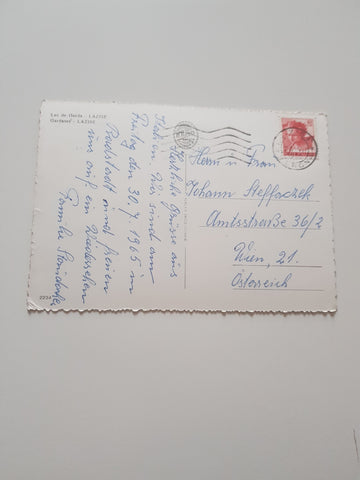 Lac de Garda - LAZISE
Gardasee - LAZISE
Herzliche Grüsse aus
Italien. Wir sind am
Freitag den 30.7.1965 in
Radstadt und freuen
uns auf ein Wiedersehen
Familie
Herrn u Frau
Johann Steffaczek
Amtsstraße 36/2
Wien, 21.
Österreich